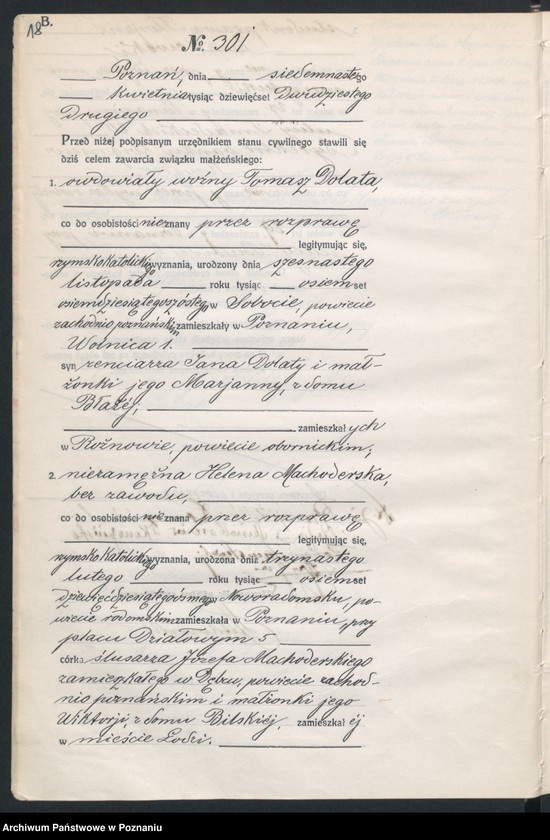 18 B.
№ 301
Poznań, dnia siedemnastego
kwietnia tysiąc dziewięćset dwudziestego
drugiego
Przed niżej podpisanym urzędnikiem stanu cywilnego stawili się
dziś celem zawarcia związku małżeńskiego:
1. owdowiały woźny Tomasz Dolata,
co do osobistości nieznany przez rozprawę
legitymując się,
rzymsko katolickiego wyznania, urodzony dnia szesnastego
listopada roku tysiąc osiemset
osiemdziesiątego szóstego w Sobocie, powiecie
zachodnio poznańskim zamieszkały w Poznaniu,
Wolnica 1.
syn renciarza Jana Dolaty i mał-
żonki jego Marjanny, z domu
Błażej,
zamieszkałych
w Rożnowie, powiecie obornickim;
2. niezamężna Helena Machoderska,
bez zawodu,
co do osobistości nieznana przez rozprawę
legitymując się,
rzymsko katolickiego wyznania, urodzona dnia trzynastego
lutego roku tysiąc osiemset
dziewięćdziesiątego ósmego w Noworadomsku, po-
wiecie rodomskim zamieszkała w Poznaniu, przy
placu Działowym 5
córka ślusarza Józefa Machoderskiego
zamieszkałego w Dębcu, powiecie zachod-
nio poznańskim i małżonki jego
Wiktorji, z domu Bilskiéj, zamieszkałéj
w mieście Łodzi.
Archiwum Państwowe w Poznaniu